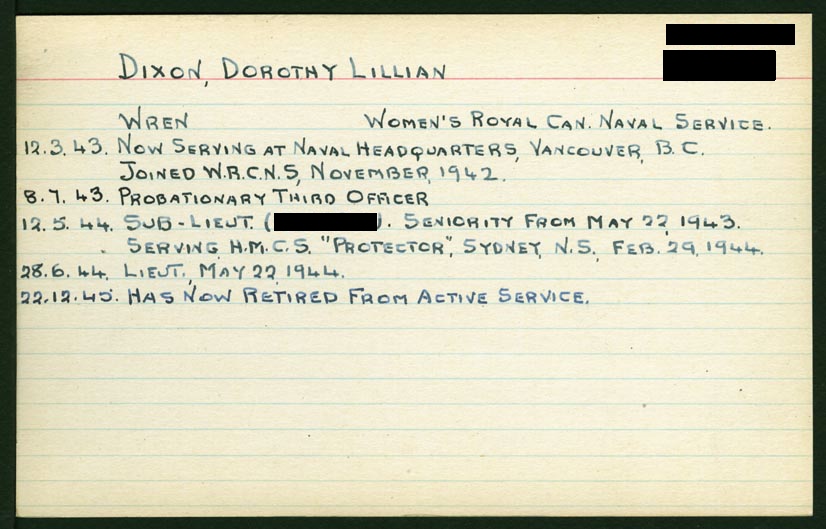 DIXON, DOROTHY LILLIAN
WREN WOMEN'S ROYAL CAN. NAVAL SERVICE.
12.3.43. NOW SERVING AT NAVAL HEADQUARTERS, VANCOUVER, B.C.
JOINED W.R.C.N.S, NOVEMBER, 1942.
8.7.43. PROBATIONARY THIRD OFFICER
12.5.44. SUB-LIEUT. ( ). SENIORITY FROM MAY 22, 1943.
SERVING H.M.C.S. "PROTECTOR", SYDNEY, N.S., FEB. 29, 1944.
28.6.44. LIEUT., MAY 22, 1944.
22.12.45. HAS NOW RETIRED FROM ACTIVE SERVICE.